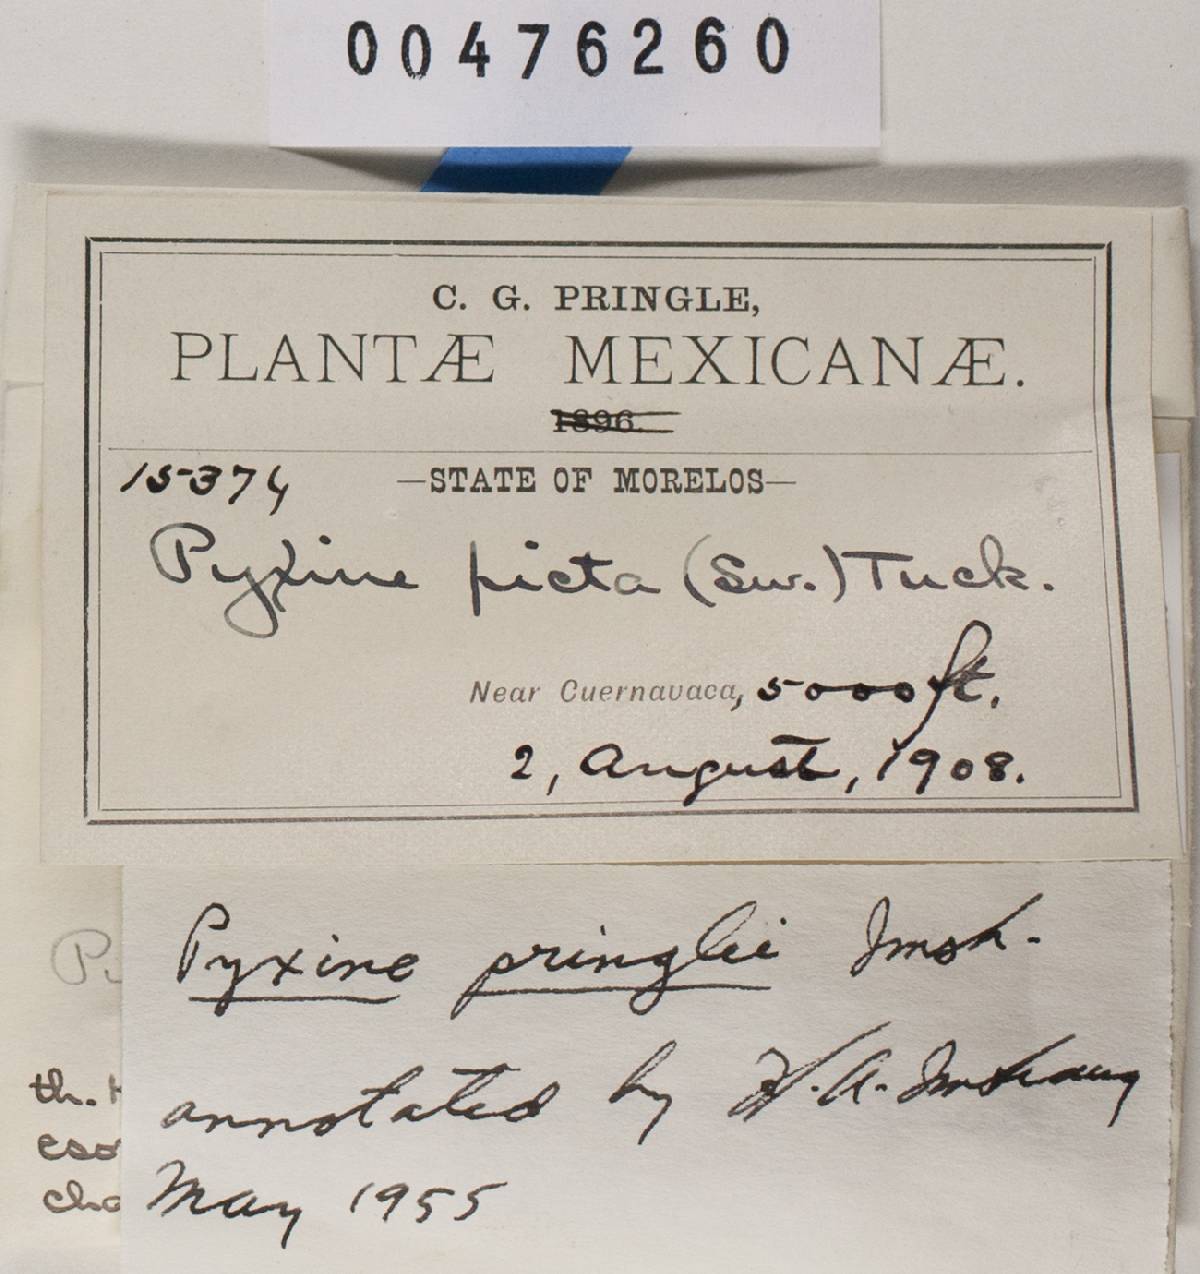 00476260
C. G. PRINGLE,
PLANTÆ MEXICANÆ.
1896.
15374
—STATE OF MORELOS—
Pyxine picta (Sw.) Tuck.
Near Cuernavaca, 5000 ft.
2, August, 1908.
Pyxine pringlei Imsh.
annotated by H. A. Imshaug
May 1955
th.